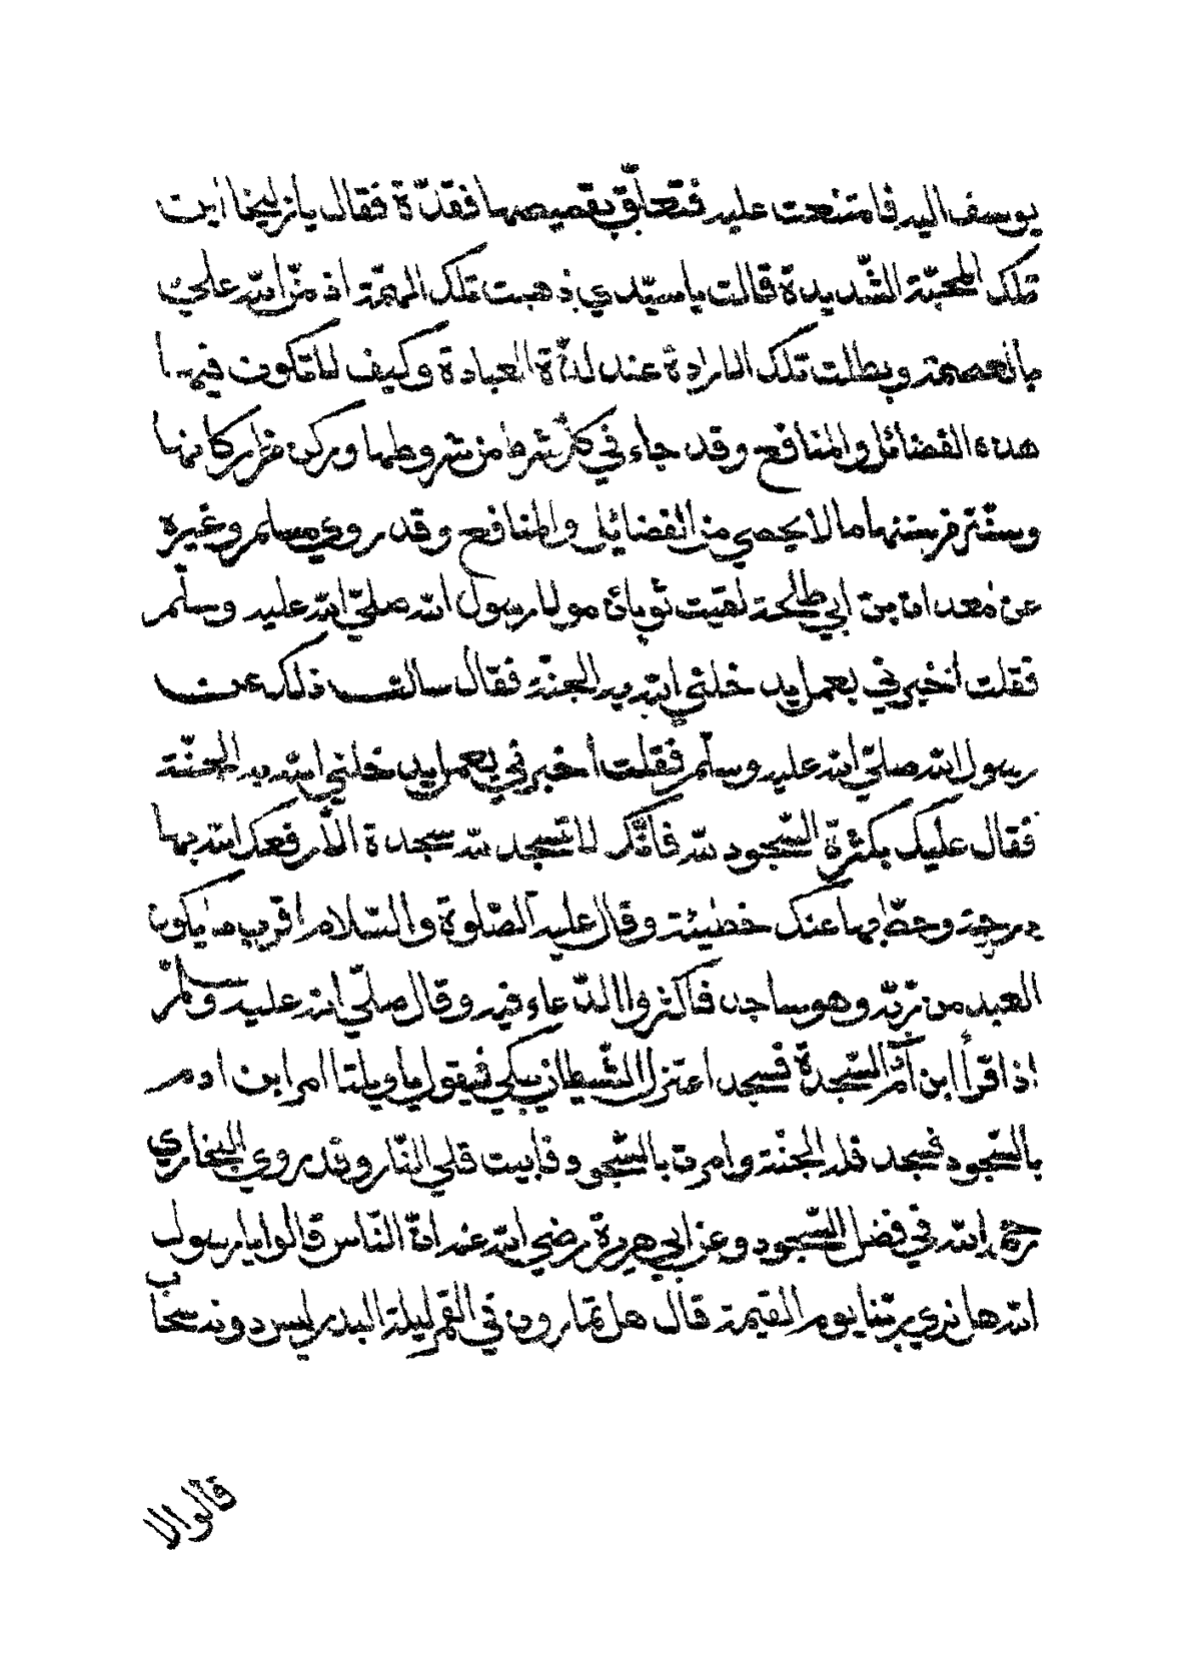 يوسف اليه فامتنعت عليه فتعلّق بقميصها فقدّة فقال يا زليخا اين
تلك المحبّة الشّديدة قالت يا سيّدي ذهبت تلك المهمّة اذ منّ الله عليّ
بالعصمة وبطلت تلك الارادة عند لذّة العبادة وكيف لا تكون فيها
هذه الفضائل والمنافع وقد جاء في كلّ شرط من شروطها وركن من اركانها
وسنّة من سننها ما لا يحصي من الفضايل والمنافع وقد روي مسلم وغيره
عن معدان بن ابي طلحة لقيت ثوبان مولا رسول الله صليّ الله عليه وسلّم
فقلت أخبرني بعمل يدخلني الله به الجنّة فقال سالت ذلك عن
رسول الله صليّ الله عليه وسلّم فقلت أخبرني بعمل يدخلني الله به الجنّة
فقال عليك بكثرة السّجود لله فانّك لا تسجد لله سجدة الاّ رفعك الله بها
درجة وحطّ بها عنك خطيئة وقال عليه الصّلوة والسّلام اقرب ما يكون
العبد من ربّه وهو ساجد فاكثروا الدّعاء فيه وقال صليّ الله عليه وسلّم
اذا قرأ ابن آدم السّجدة فسجد اعتزل الشّيطان يبكي فيقول يا ويلتا امر ابن ادم
بالسّجود فسجد فله الجنّة وامرت بالسّجود فابيت فلي النّار وقد روي البخاري
رحمه الله في فضل السّجود وعن ابي هريرة رضي الله عنه انّ النّاس قالوا يا رسول
الله هل نري ربّنا يوم القيمة قال هل تمارون في القمر ليلة البدر ليس دونه سحاب
قالوا لا